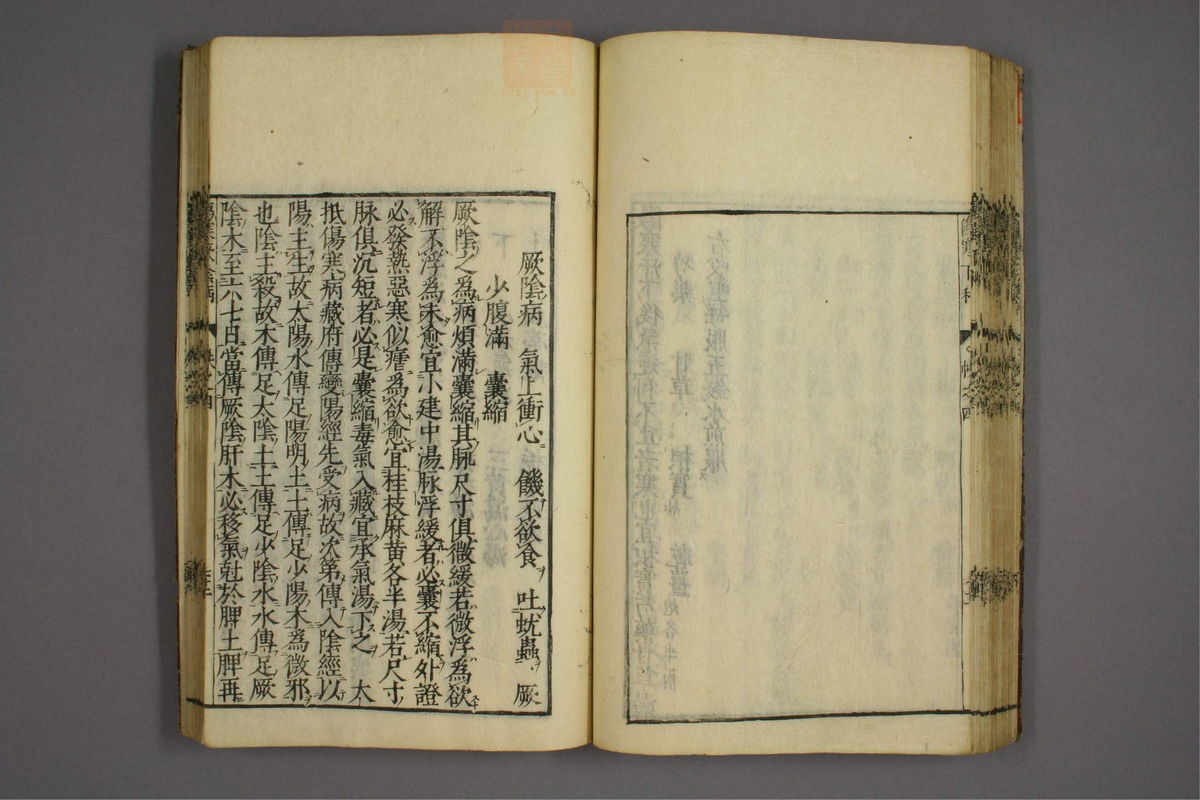 厥陰病　氣上衝心　饑不欲食　吐蚘蟲　厥
少腹滿　囊縮
厥陰之為病煩滿囊縮其脉尺寸俱微緩若微浮為欲
解不浮為未愈宜小建中湯脉浮緩者必囊不縮外證
必發熱惡寒似瘧為欲愈宜桂枝麻黄各半湯若尺寸
脉俱沉短者必是囊縮毒氣入藏宜承氣湯下之　太
抵傷寒病藏府傳變陽經先受病故次第傳入陰經以
陽主生故太陽水傳足陽明土土傳足少陽木為微邪
也陰主殺故木傳足太陰土土傳足少陰水水傳足厥
陰木至六七日當傳厥陰肝木必移氣尅於脾土脾再